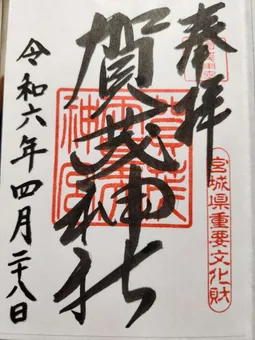 奉拝
賀茂神社
宮城県重要文化財
令和六年四月二十八日